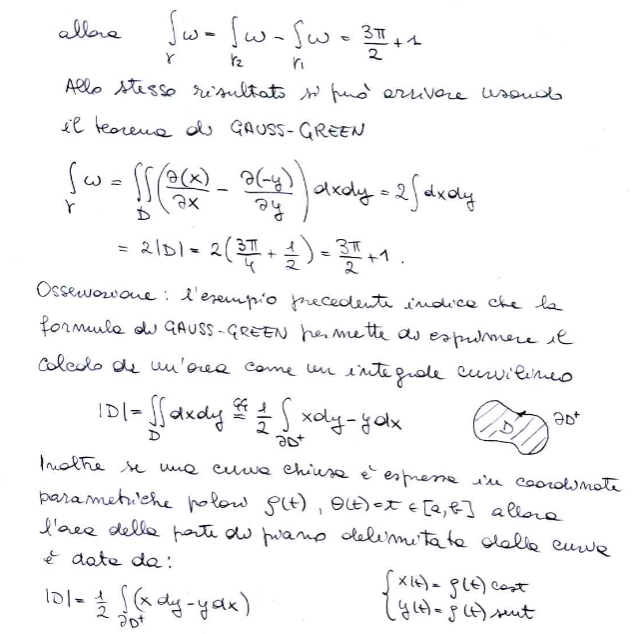 allora ∫_γ ω = ∫_γ2 ω - ∫_γ1 ω = 3π/2 + 1
Allo stesso risultato si può arrivare usando
il teorema di GAUSS-GREEN
∫_γ ω = ∬_D (∂(x)/∂x - ∂(-y)/∂y) dxdy = 2∫dxdy
= 2|D| = 2(3π/4 + 1/2) = 3π/2 + 1.
Osservazione: l'esempio precedente indica che la
formula di GAUSS-GREEN permette di esprimere il
calcolo di un'area come un integrale curvilineo
|D| = ∬_D dxdy =^{GG} 1/2 ∫_∂D⁺ xdy - ydx
D ∂D⁺
Inoltre se una curva chiusa è espressa in coordinate
parametriche polari ρ(t), θ(t)=t ∈ [a,b] allora
l'area della parte di piano delimitata dalla curva
è data da:
|D| = 1/2 ∫_∂D⁺ (x dy - y dx) { x(t) = ρ(t) cost
y(t) = ρ(t) sent